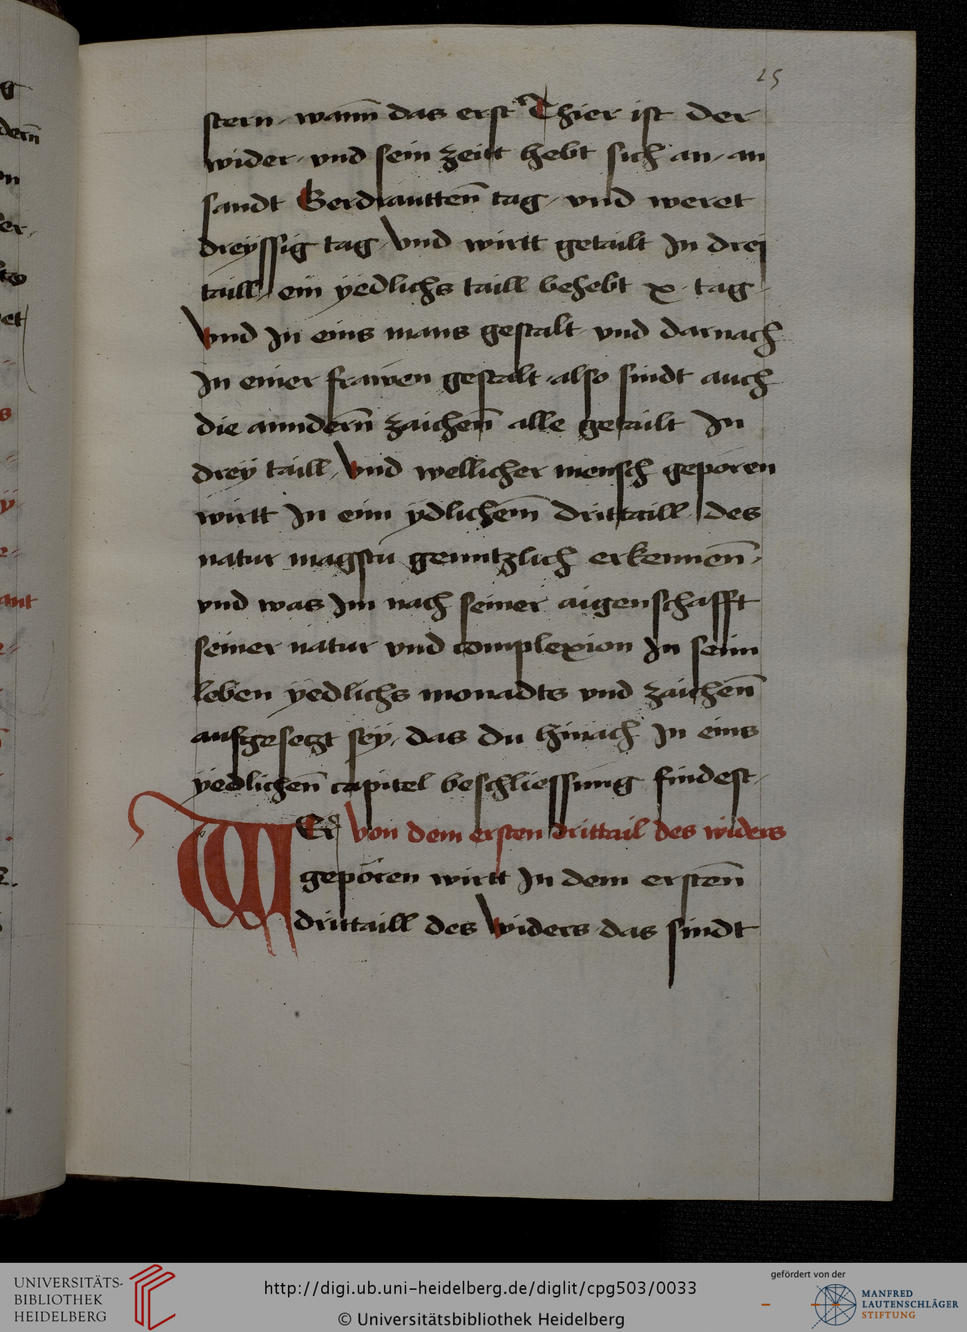 25
stern / wann̄ das erst Thier ist der
wider / vnd sein zeitt hebt sich an / an
sandt Gerdrautten̄ tag / vnd weret
dreyssig tag / Vnd wirtt getailt In drei
taill / ein yedlichs taill behebt x · tag /
Vnd In eins mans gestalt vnd darnach
In einer frawen gestalt / also sindt auch
die anndern̄ zaichen̄ alle getailt In
drey taill / Vnd wellicher mensch geporen
wirtt In eim ydlichem̄ drittaill / des
natur magstu genntzlich erkennen̄ /
vnd was Im nach seiner aigenschafft
seiner natur vnd complexion In seim
leben yedlichs monadts vnd zaichen̄
aufgesegt sey / das du hinach In eins
yedlichen̄ capitel beschliessung findest /
WEr Von dem ersten drittail des widers
geporen wirtt In dem ersten̄
drittaill des Widers das sindt
UNIVERSITÄTS-
BIBLIOTHEK
HEIDELBERG
http://digi.ub.uni-heidelberg.de/diglit/cpg503/0033
© Universitätsbibliothek Heidelberg
gefördert von der
MANFRED
LAUTENSCHLÄGER
STIFTUNG